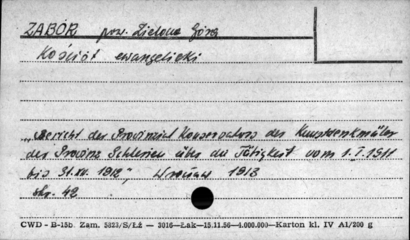 ZABÓR pow. Zielona Góra
Kościół ewangelicki
„Bericht des Provinzial Konservators der Kunstdenkmäler
der Provinz Schlesien über die Tätigkeit vom 1.I.1911
bis 31.XII. 1912", Wrocław 1913
str. 42
CWD - B-15b Zam. 5823/S/Łż — 3016—Łak—15.11.56—4.000.000—Karton kl. IV A1/200 g